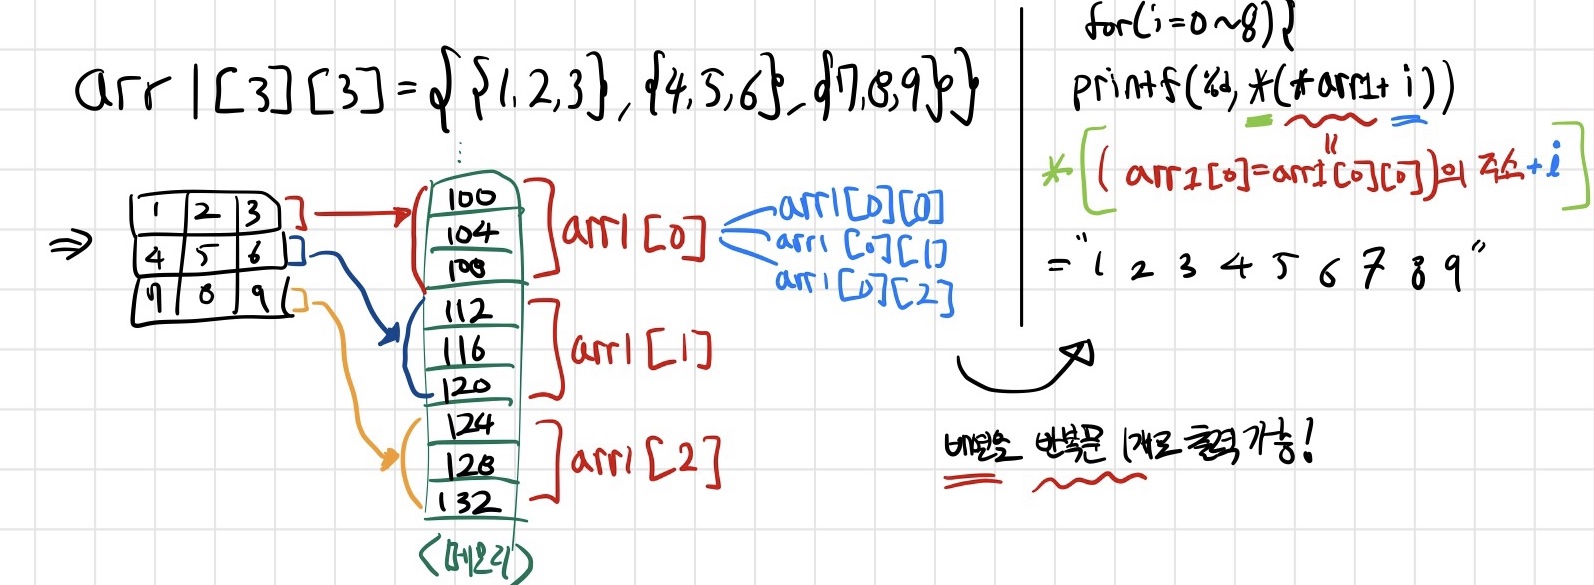 arr1[3][3]={{1,2,3},{4,5,6},{7,8,9}}
⇒
1 2 3
4 5 6
7 8 9
100
104
108
112
116
120
124
128
132
<메모리>
arr1[0]
arr1[1]
arr1[2]
arr1[0][0]
arr1[0][1]
arr1[0][2]
for(i=0~8){
printf(%d, *(*arr1+i))
*[(arr1[0]=arr1[0][0])의 주소+i]
="1 2 3 4 5 6 7 8 9"
배열을 반복문 1개로 출력 가능!